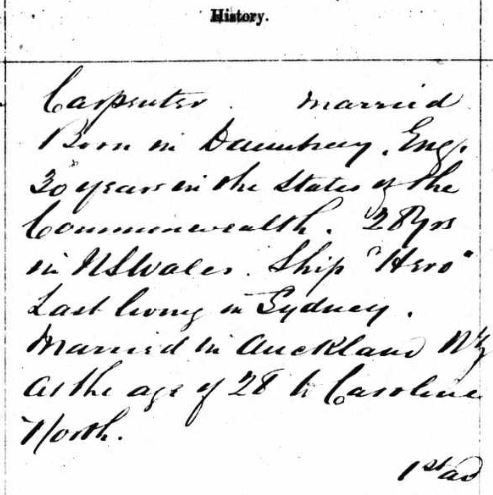 History.
Carpenter. Married
Born in Daventry, Eng.
30 years in the States of the
Commonwealth. 28 yrs
in NSWales. Ship "Hero"
Last living in Sydney.
Married in Auckland NZ
at the age of 28 to Caroline
North.
1st ad